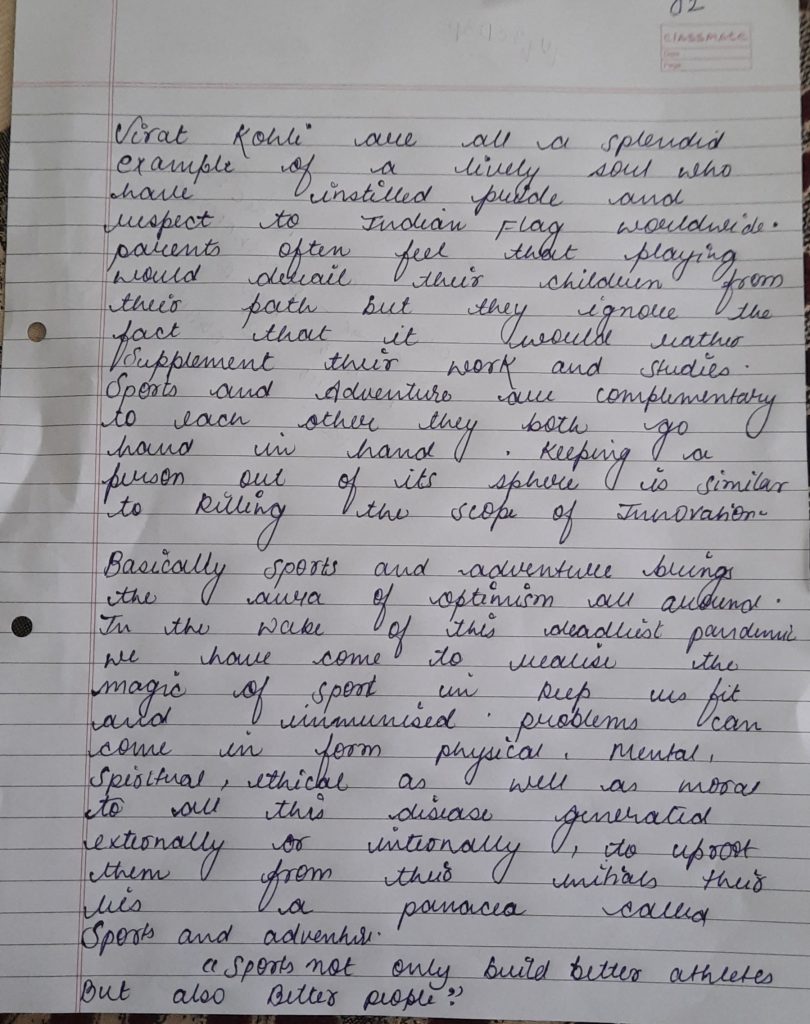 02
CLASSMATE
Date
Page
Virat Kohli" are all a splendid
example of a lively soul who
have instilled pride and
respect to Indian Flag worldwide.
parents often feel that playing
would derail their children from
their path but they ignore the
fact that it would rather
Supplement their work and studies.
Sports and Adventure are complimentary
to each other they both go
hand in hand . Keeping a
person out of its sphere is similar
to killing the scope of Innovation.
Basically sports and adventure brings
the aura of optimism all around.
In the wake of this deadliest pandemic
we have come to realise the
magic of sport in keep us fit
and immunised. problems can
come in form physical, mental,
spiritual, ethical as well as moral
to all this disease generated
externally or internally, to uproot
them from their initials their
lies a panacea called
Sports and adventure.
"Sports not only build better athletes
But also Better people"